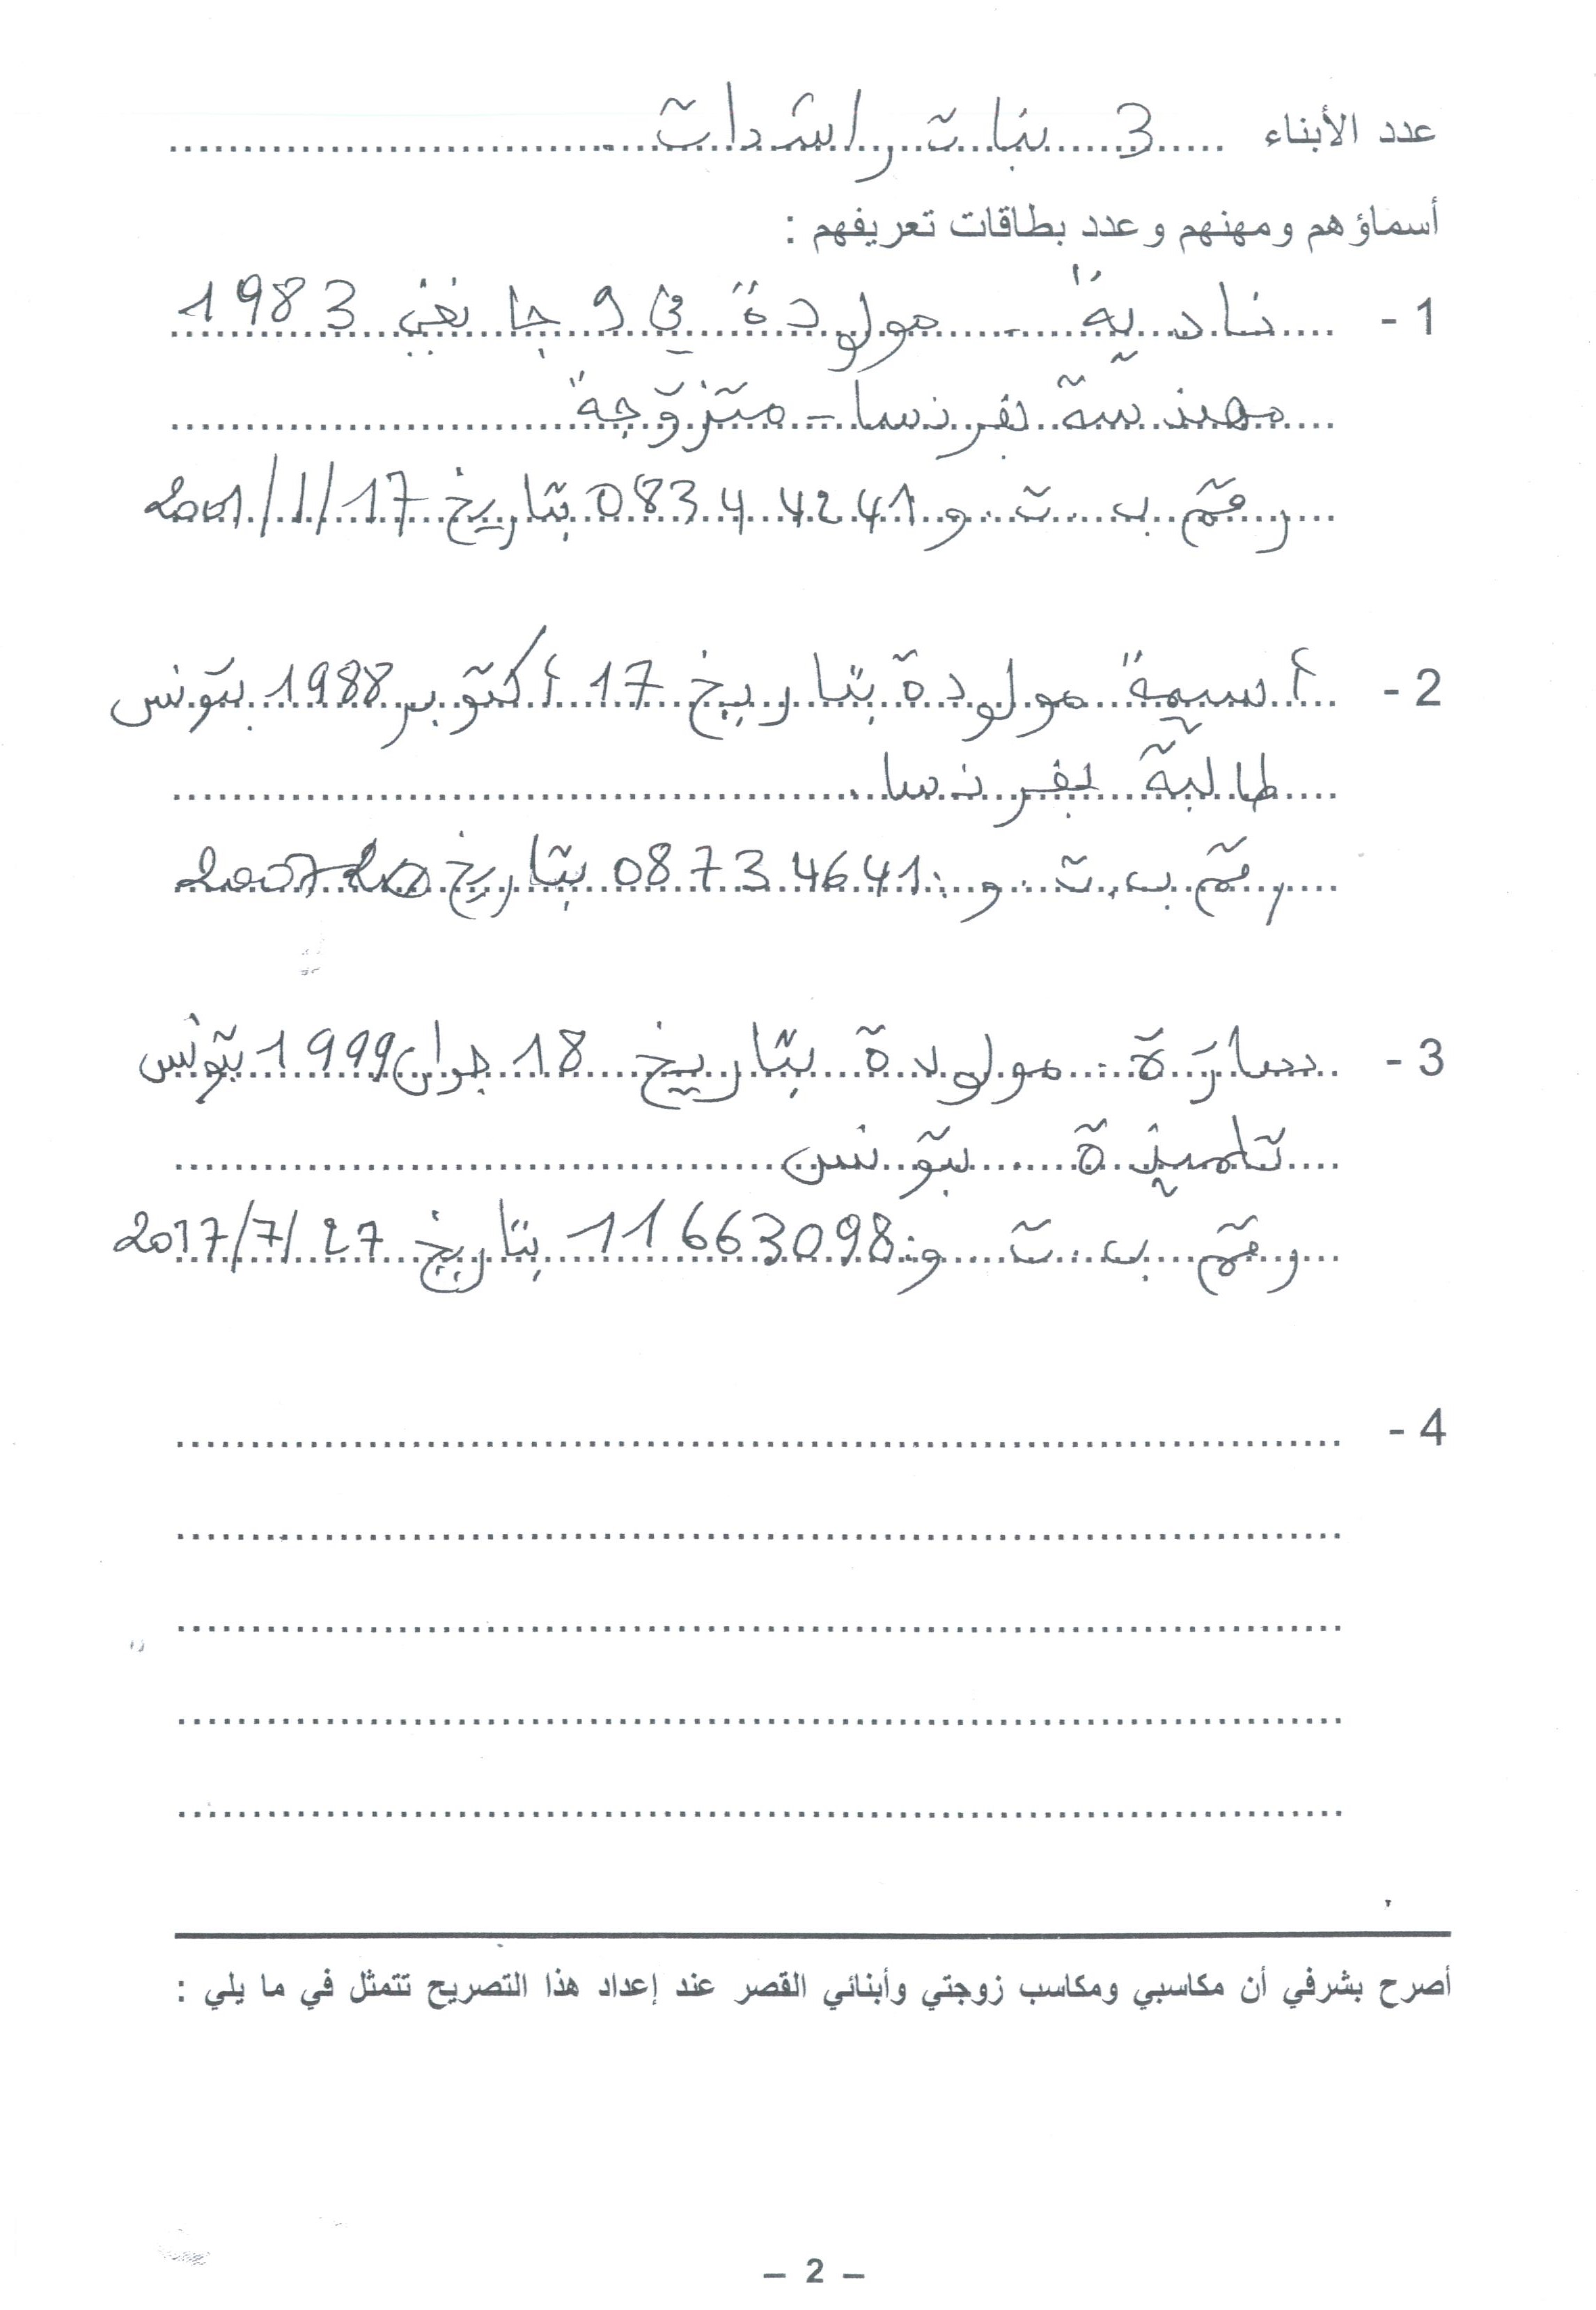 عدد الأبناء 3 بنات راشدات
أسماؤهم ومهنهم وعدد بطاقات تعريفهم :
1 - نادية مولودة في 9 جانفي 1983
مهندسة بفرنسا - متزوّجة
رقم ب ت و 08344241 بتاريخ 17/1/2001
2 - أسيمة مولودة بتاريخ 17 أكتوبر 1988 بتونس
طالبة بفرنسا
رقم ب ت و: 08734641 بتاريخ
3 - سارة مولودة بتاريخ 18 جوان 1999 بتونس
تلميذة بتونس
رقم ب ت و: 11663098 بتاريخ 27/7/2017
4 -
أصرح بشرفي أن مكاسبي ومكاسب زوجتي وأبنائي القصر عند إعداد هذا التصريح تتمثل في ما يلي :
– 2 –